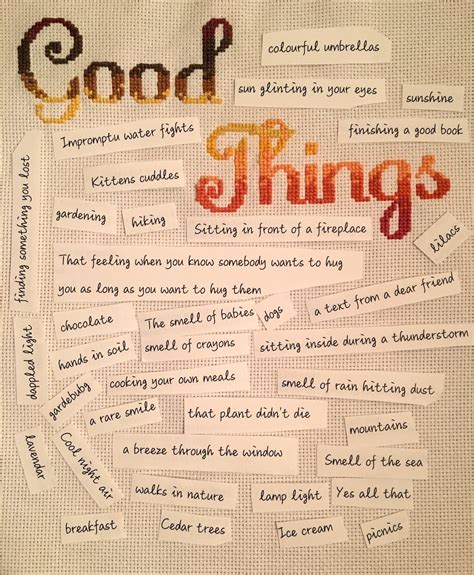 Good
colourful umbrellas
sun glinting in your eyes
sunshine
Impromptu water fights
finishing a good book
Things
finding something you lost
Kittens cuddles
gardening
hiking
Sitting in front of a fireplace
lilacs
That feeling when you know somebody wants to hug
you as long as you want to hug them
a text from a dear friend
chocolate
The smell of babies
dogs
dappled light
hands in soil
smell of crayons
sitting inside during a thunderstorm
gardebubg
cooking your own meals
smell of rain hitting dust
a rare smile
that plant didn't die
mountains
lavendar
Cool night air
a breeze through the window
Smell of the sea
walks in nature
lamp light
Yes all that
breakfast
Cedar trees
Ice cream
picnics